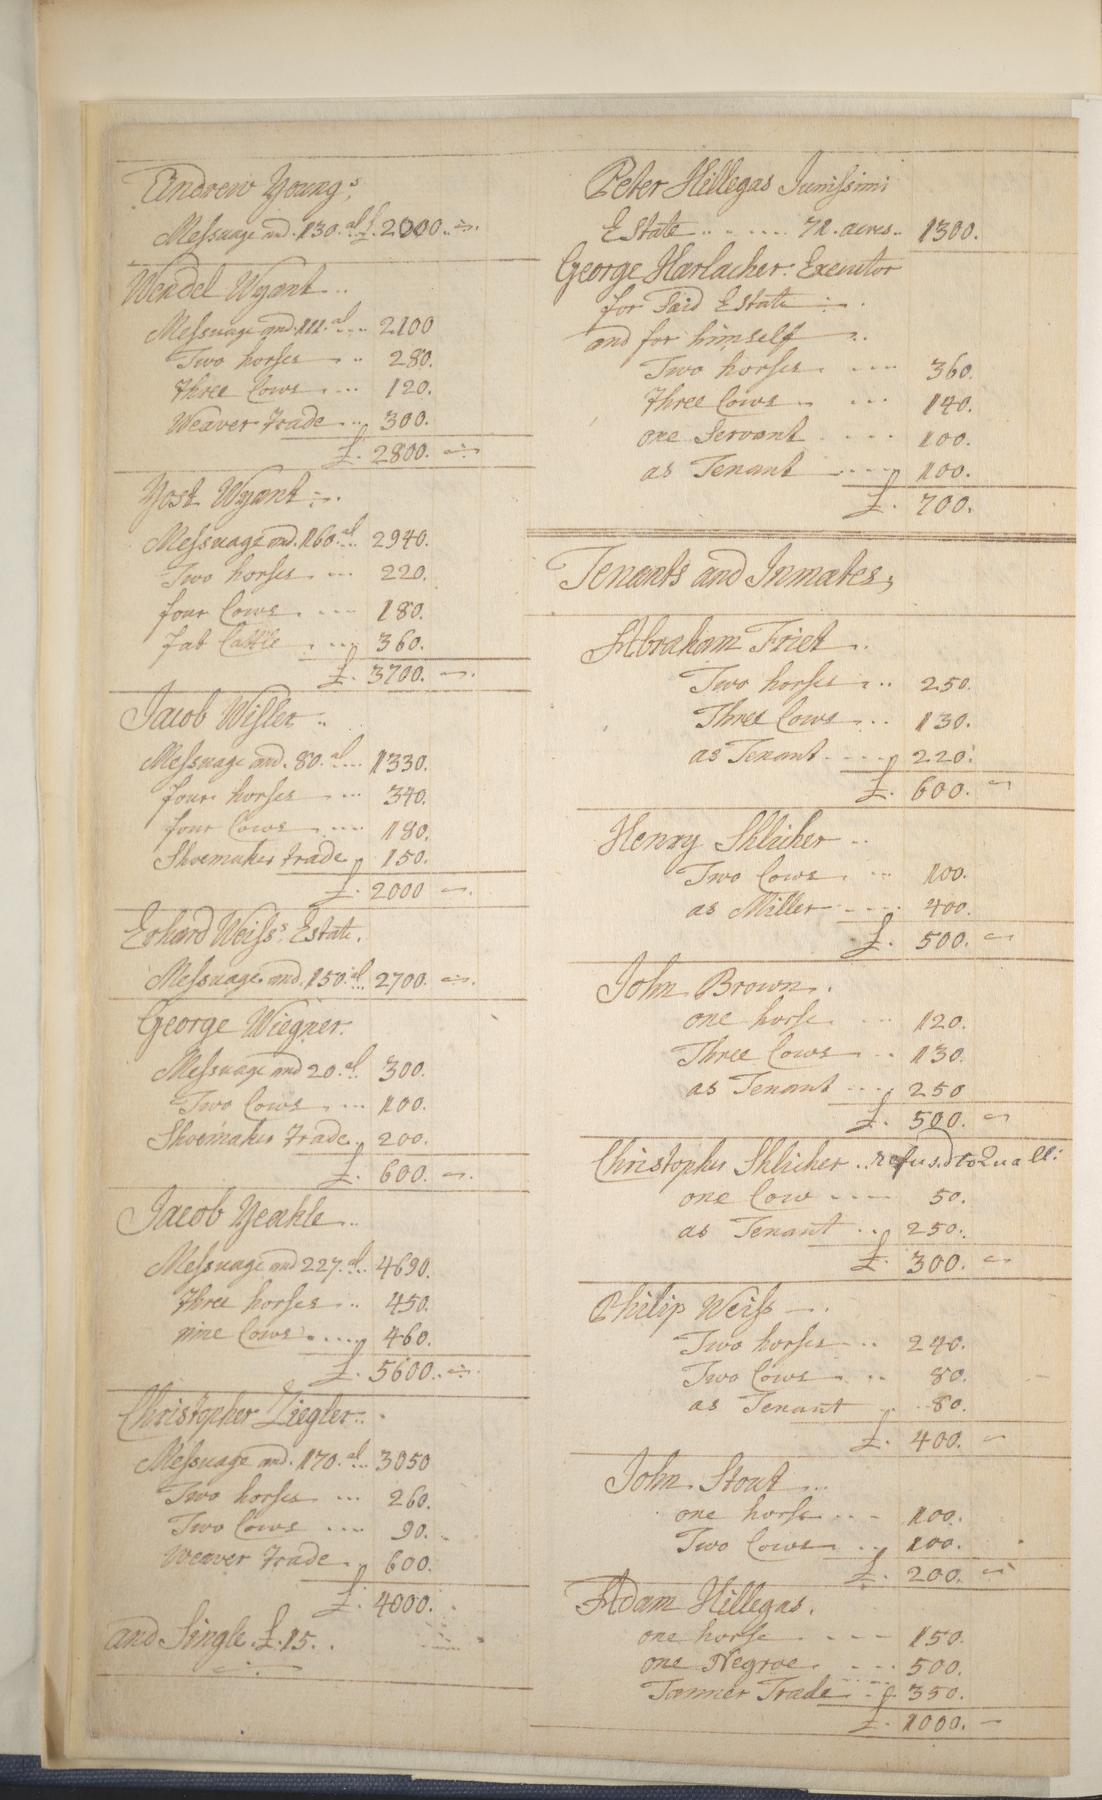 Andrew Young's
Messuage and 130. al £. 2000.
Wendel Wyant
Messuage and 111. al 2100
Two horses 280.
Three Cows 120.
Weaver Trade 300.
£. 2800.
Yost Wyant
Messuage and 160. al 2940.
Two horses 220.
four Cows 180.
fat Cattle 360.
£. 3700.
Jacob Wisler
Messuage and 80. al 1330.
four horses 340.
four Cows 180.
Shoemaker Trade 150.
£. 2000
Erhard Weiss's Estate.
Messuage and 150. al 2700.
George Wiegner.
Messuage and 20. al 300.
Two Cows 100.
Shoemaker Trade 200.
£. 600.
Jacob Yeakle
Messuage and 227. al 4690.
Three horses 450.
nine Cows 460.
£. 5600.
Christopher Ziegler
Messuage and 170. al 3050
Two horses 260.
Two Cows 90.
Weaver Trade 600.
£. 4000.
and Single £. 15.
Peter Hillegas Junissimi
Estate 72. acres 1300.
George Harlacher. Executor
for Said Estate
and for himself
Two horses 360.
Three Cows 140.
one Servant 100.
as Tenant 100.
£. 700.
Tenants and Inmates,
Abraham Friet
Two horses 250.
Three Cows 130.
as Tenant 220.
£. 600.
Henry Shlicher
Two Cows 100.
as Miller 400.
£. 500.
John Brown.
one horse 120.
Three Cows 130.
as Tenant 250
£. 500.
Christopher Shlicher refusd to Quall:
one Cow 50.
as Tenant 250.
£. 300.
Philip Weiss
Two horses 240.
Two Cows 80.
as Tenant 80.
£. 400.
John Stout
one horse 100.
Two Cows 100.
£. 200.
Adam Hillegas.
one horse 150.
one Negroe 500.
Tanner Trade 350.
£. 1000.